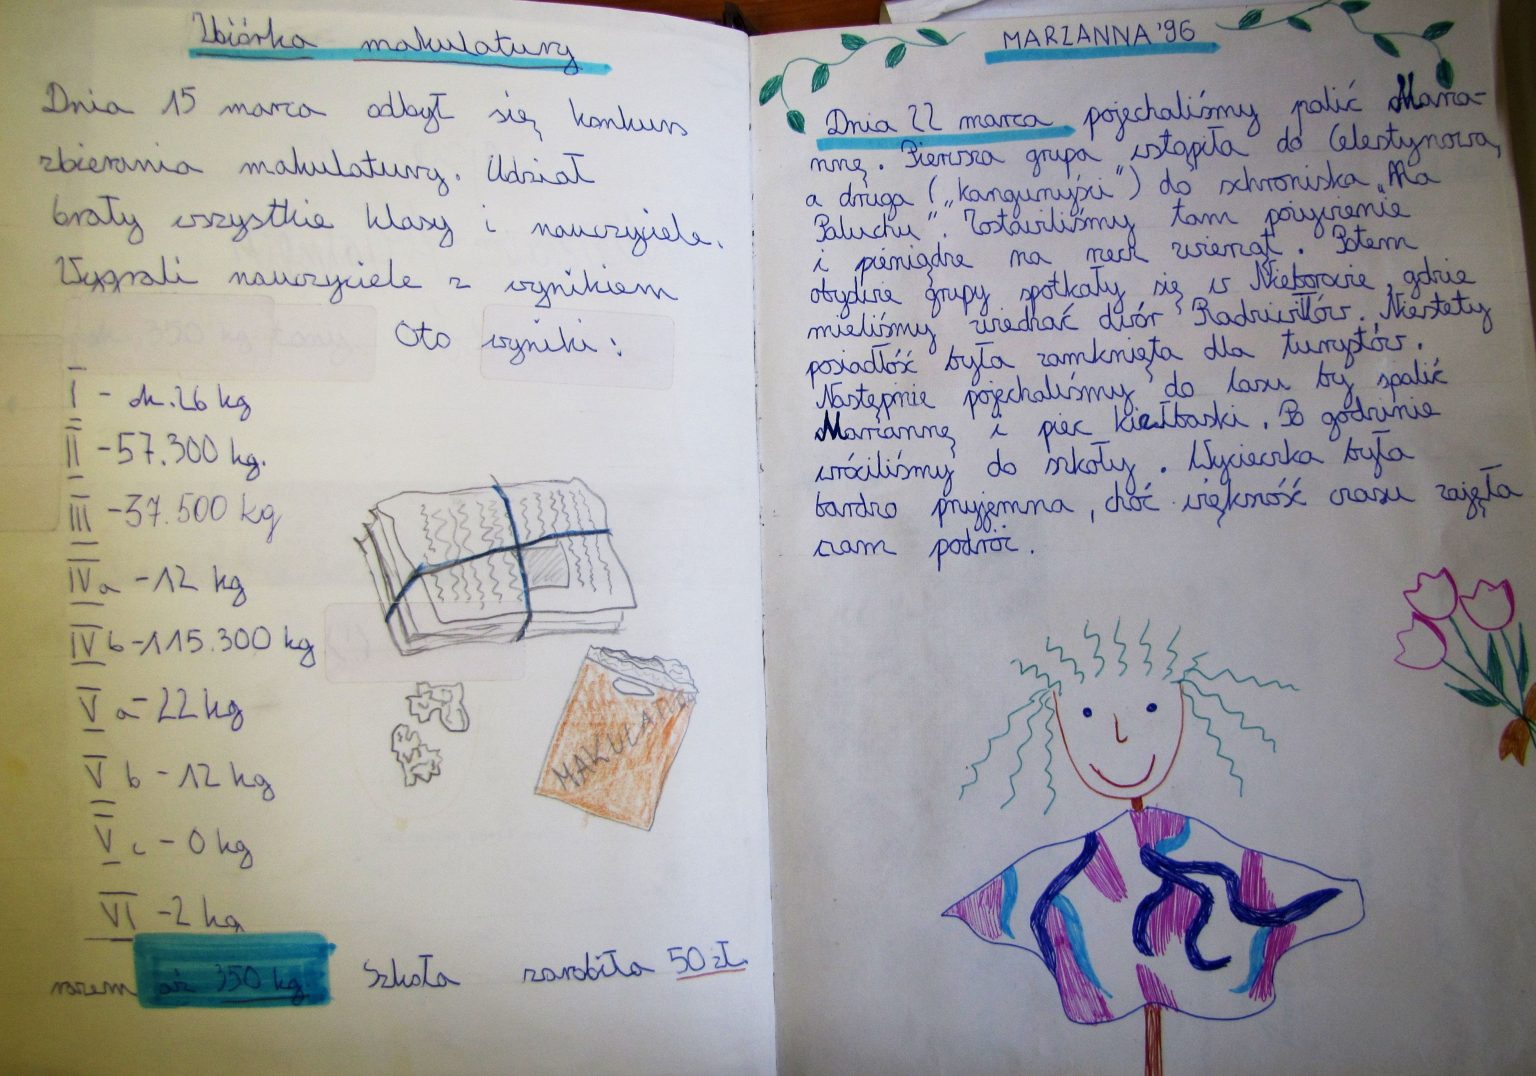 Zbiórka makulatury
Dnia 15 marca odbył się konkurs
zbierania makulatury. Udział
brały wszystkie klasy i nauczyciele.
Wygrali nauczyciele z wynikiem
Oto wyniki:
I - ok. 26 kg
II - 57.300 kg.
III - 37.500 kg
IV a - 12 kg
IV b - 115.300 kg
V a - 22 kg
V b - 12 kg
V c - 0 kg
VI - 2 kg
razem aż 350 kg. Szkoła zarobiła 50 zł.
MAKULATURA
MARZANNA '96
Dnia 22 marca pojechaliśmy palić Marza-
nnę. Pierwsza grupa wstąpiła do Celestynowa,
a druga („kangurujski") do schroniska „Na
Paluchu". Zostawiliśmy tam pożywienie
i pieniądze na rzecz zwierząt. Potem
obydwie grupy spotkały się w Nieborowie, gdzie
mieliśmy zwiedzać dwór Radziwiłłów. Niestety
posiadłość była zamknięta dla turystów.
Następnie pojechaliśmy do lasu by spalić
Marzannę i piec kiełbaski. Po godzinie
wróciliśmy do szkoły. Wycieczka była
bardzo przyjemna, choć większość czasu zajęła
nam podróż.